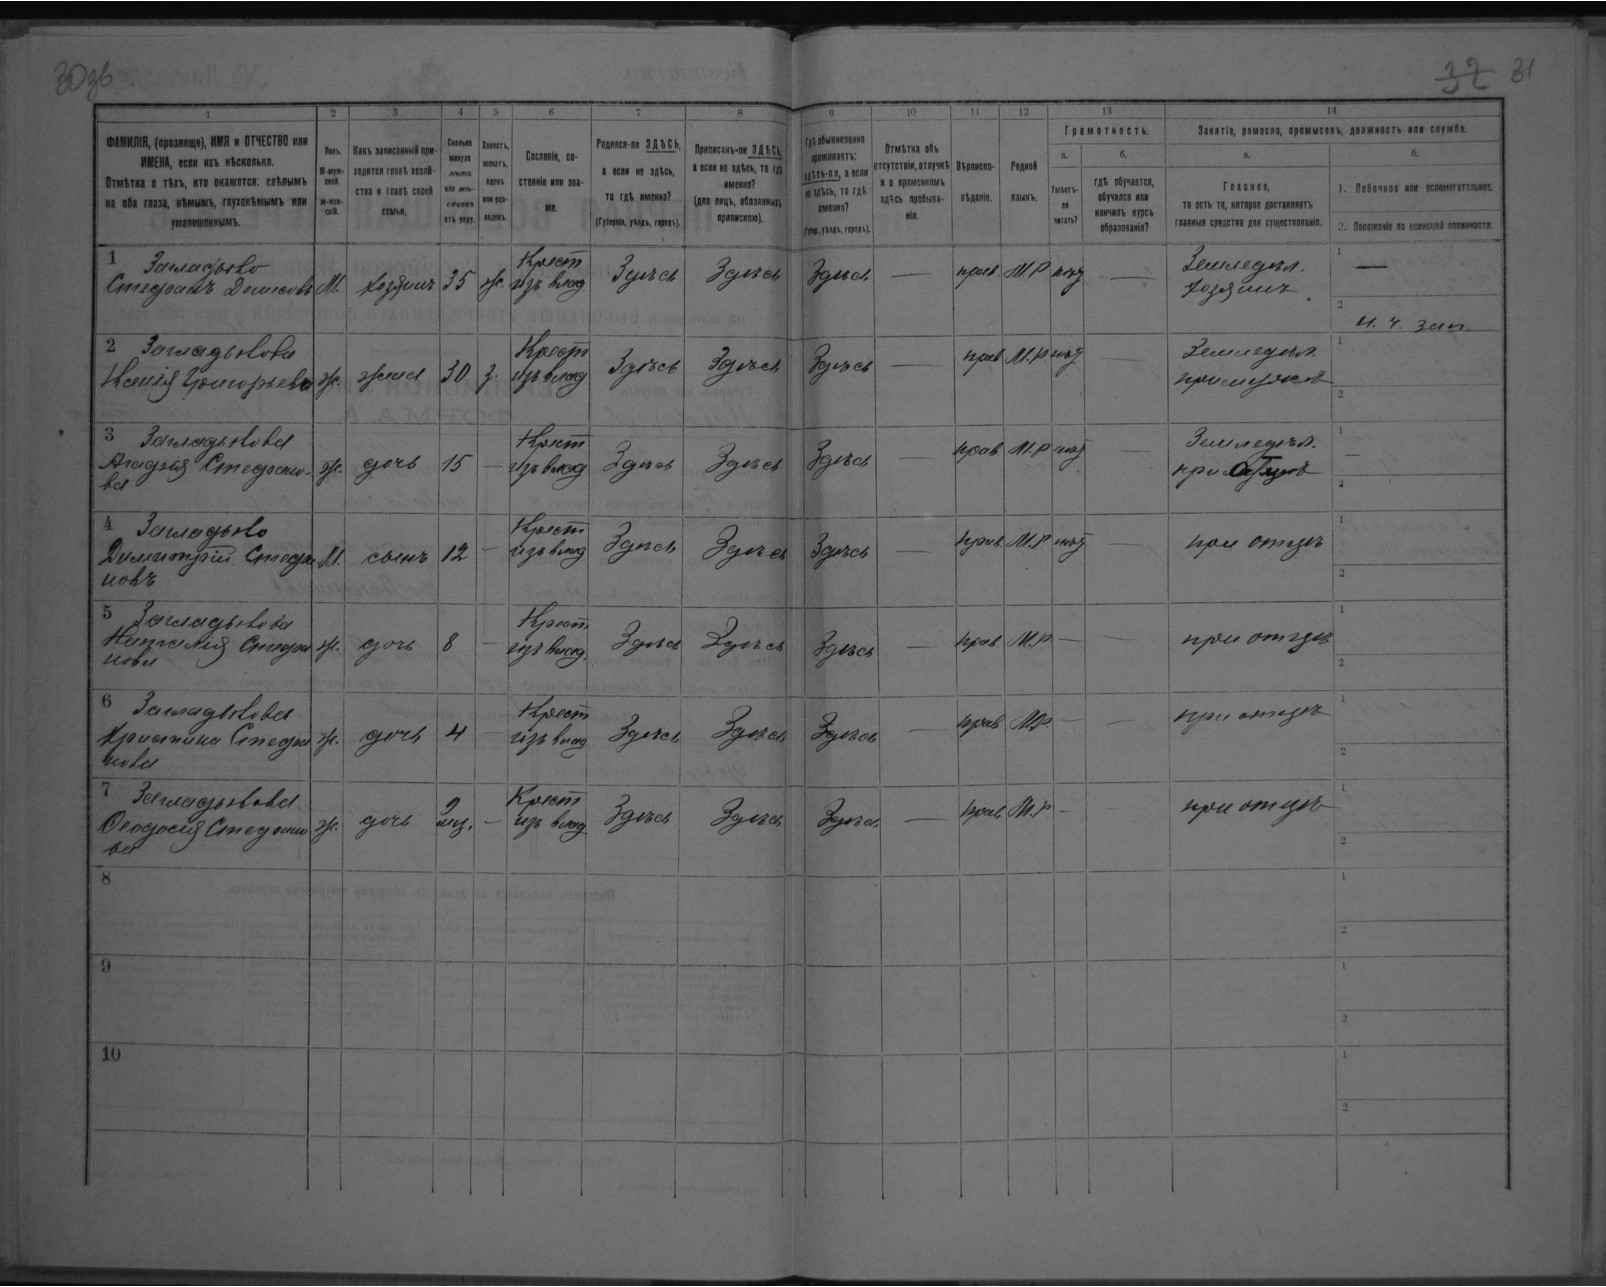 30 зв
32 31
1 2 3 4 5 6 7 8 9 10 11 12 13 14
ФАМИЛІЯ, (прозвище), ИМЯ и ОТЧЕСТВО или
ИМЕНА, если ихъ нѣсколько.
Отмѣтка о тѣхъ, кто окажется: слѣпымъ
на оба глаза, нѣмымъ, глухонѣмымъ или
умалишеннымъ.
Полъ.
М-муж-
ской.
Ж-жен-
скій.
Какъ записанный при-
ходится главѣ хозяй-
ства и главѣ своей
семьи.
Сколько
минуло
лѣтъ
или мѣ-
сяцевъ
отъ роду.
Холостъ,
женатъ,
вдовъ
или раз-
веденъ.
Сословіе, со-
стояніе или зва-
ніе.
Родился-ли ЗДѢСЬ,
а если не здѣсь,
то гдѣ именно?
(Губернія, уѣздъ, городъ).
Приписанъ-ли ЗДѢСЬ,
а если не здѣсь, то гдѣ
именно?
(для лицъ, обязанныхъ
припискою).
Гдѣ обыкновенно
проживаетъ:
здѣсь-ли, а если
не здѣсь, то гдѣ
именно?
(Губер., уѣздъ, городъ).
Отмѣтка объ
отсутствіи, отлучкѣ
и о временномъ
здѣсь пребыва-
ніи.
Вѣроиспо-
вѣданіе.
Родной
языкъ.
Грамотность.
а.
Умѣетъ-
ли
читать?
б.
гдѣ обучается,
обучался или
кончилъ курсъ
образованія?
Занятіе, ремесло, промыселъ, должность или служба.
а.
Главное,
то есть то, которое доставляетъ
главныя средства для существованія.
б.
1. Побочное или вспомогательное.
2. Положеніе по воинской повинности.
1 Загладько
Стефанъ Денисовъ М. хозяинъ 35 ж. Крест изъ влад Здѣсь Здѣсь Здѣсь — прав. М.Р нѣт — Земледѣл. хозяинъ 1 —
2 н. ч. зап.
2 Загладькова
Ксенія Григорьева ж. жена 30 з. Крест изъ влад Здѣсь Здѣсь Здѣсь — прав М.Р нѣт — Земледѣл. при мужѣ 1
2
3 Загладькова
Агафія Стефано-
ва ж. дочь 15 — Крест изъ влад Здѣсь Здѣсь Здѣсь — прав М.Р нѣт — Земледѣл. при отцѣ 1 —
2
4 Загладько
Димитрій Стефа
новъ М. сынъ 12 — Крест изъ влад Здѣсь Здѣсь Здѣсь — прав М.Р нѣт — при отцѣ 1
2
5 Загладькова
Наталія Стефа
нова ж. дочь 8 — Крест изъ влад. Здѣсь Здѣсь Здѣсь — прав М.Р — — при отцѣ 1
2
6 Загладькова
Христина Стефа
нова ж. дочь 4 — Крест изъ влад Здѣсь Здѣсь Здѣсь — прав М.Р. — — при отцѣ 1
2
7 Загладькова
Феодосія Стефано
ва ж. дочь 2 мц. — Крест изъ влад Здѣсь Здѣсь Здѣсь — прав М.Р — — при отцѣ 1
2
8 1
2
9 1
2
10 1
2